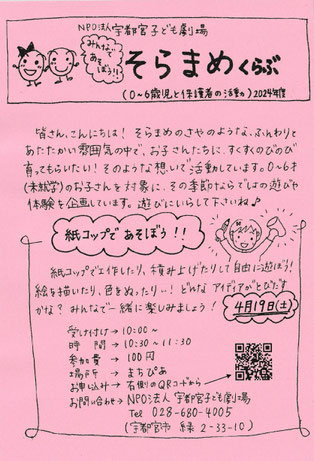 NPO法人 宇都宮子ども劇場
みんなで
あそぼう!!
そらまめくらぶ
(0~6歳児と保護者の活動) 2024年度
皆さん、こんにちは! そらまめのさやのような、ふんわりと
あたたかい雰囲気の中で、お子さんたちに、すくすくのびのび
育ってもらいたい! そのような想いで活動しています。0~6才
(未就学)のお子さんを対象に、その季節ならではの遊びや
体験を企画しています。遊びにいらして下さいね♪
紙コップであそぼう!!
紙コップで工作したり、積み上げたりして自由に遊ぼう!
絵を描いたり、色をぬったり…! どんなアイディアがとびだす
かな? みんなで一緒に楽しみましょう!
4月19日(土)
受け付け → 10:00~
時間 → 10:30~11:30
参加費 → 100円
場所 → まちぴあ
お申し込み → 右側のQRコードから
お問い合わせ → NPO法人 宇都宮子ども劇場
Tel 028-680-4005
(宇都宮市 緑 2-33-10)